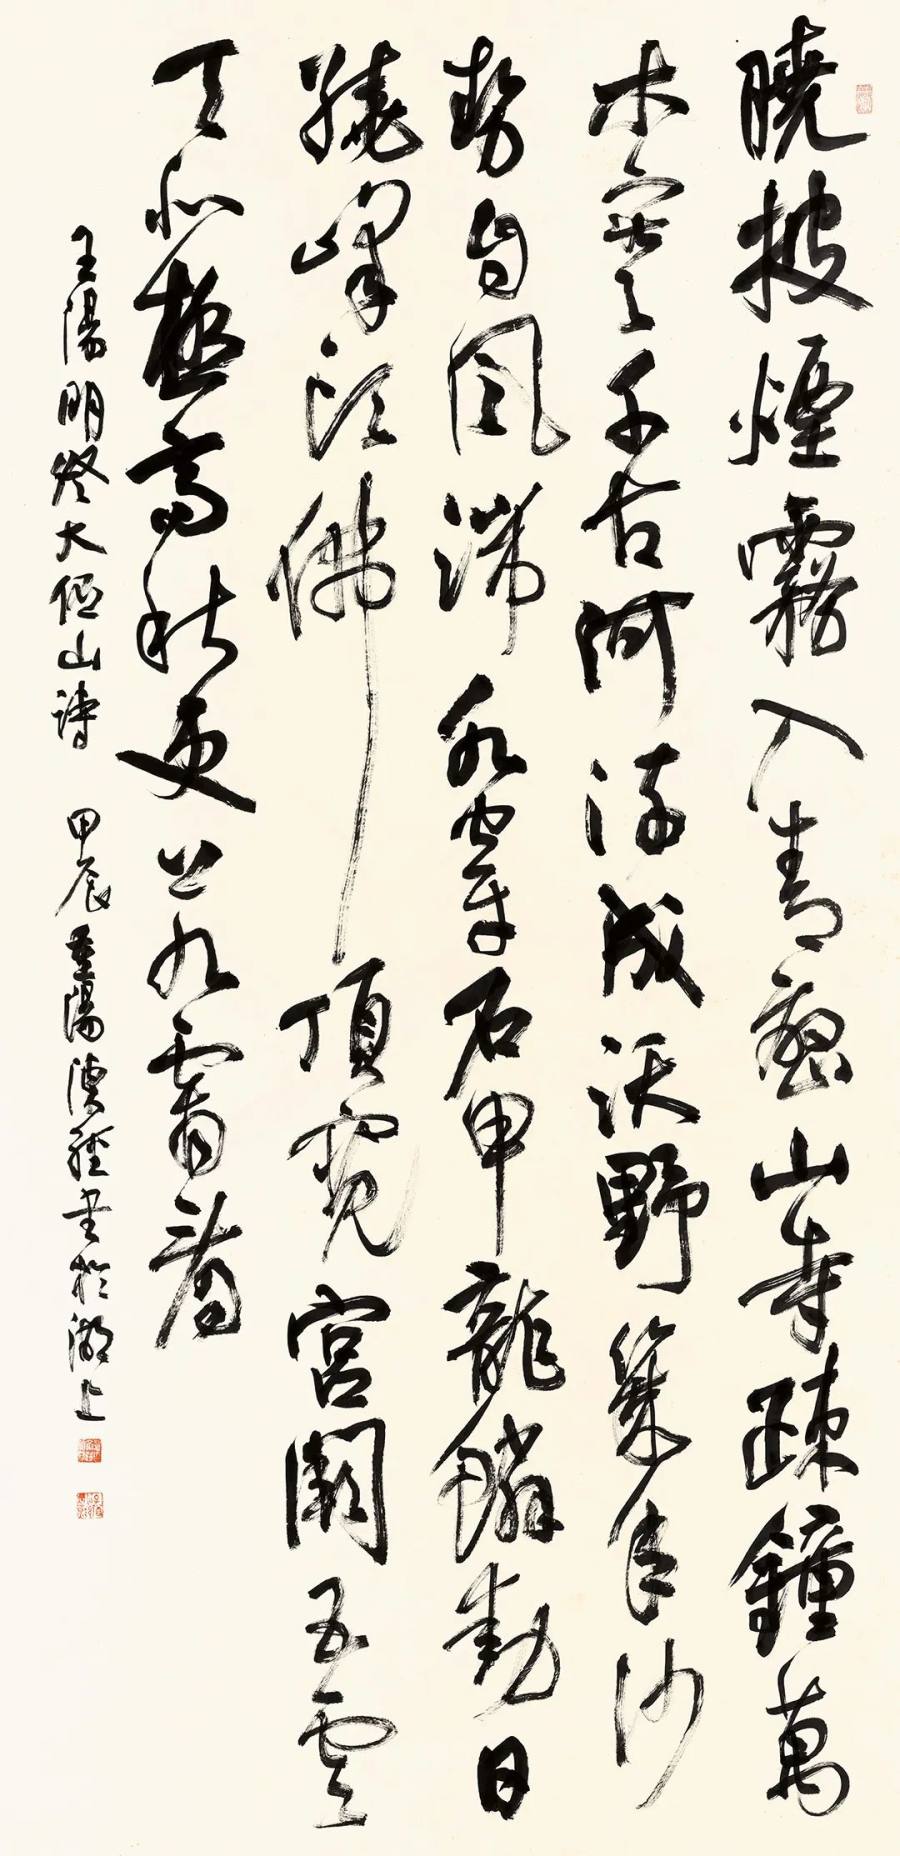 曉披煙霧入青巒山寺疎鐘萬
木寒千古河流成沃野幾年沙
勢自風湍水穿石甲龍鱗動日
繞峰頭佛頂寬宮闕五雲
天北極高秋更上九霄看
王陽明登大伾山詩 甲辰重陽書於湖上